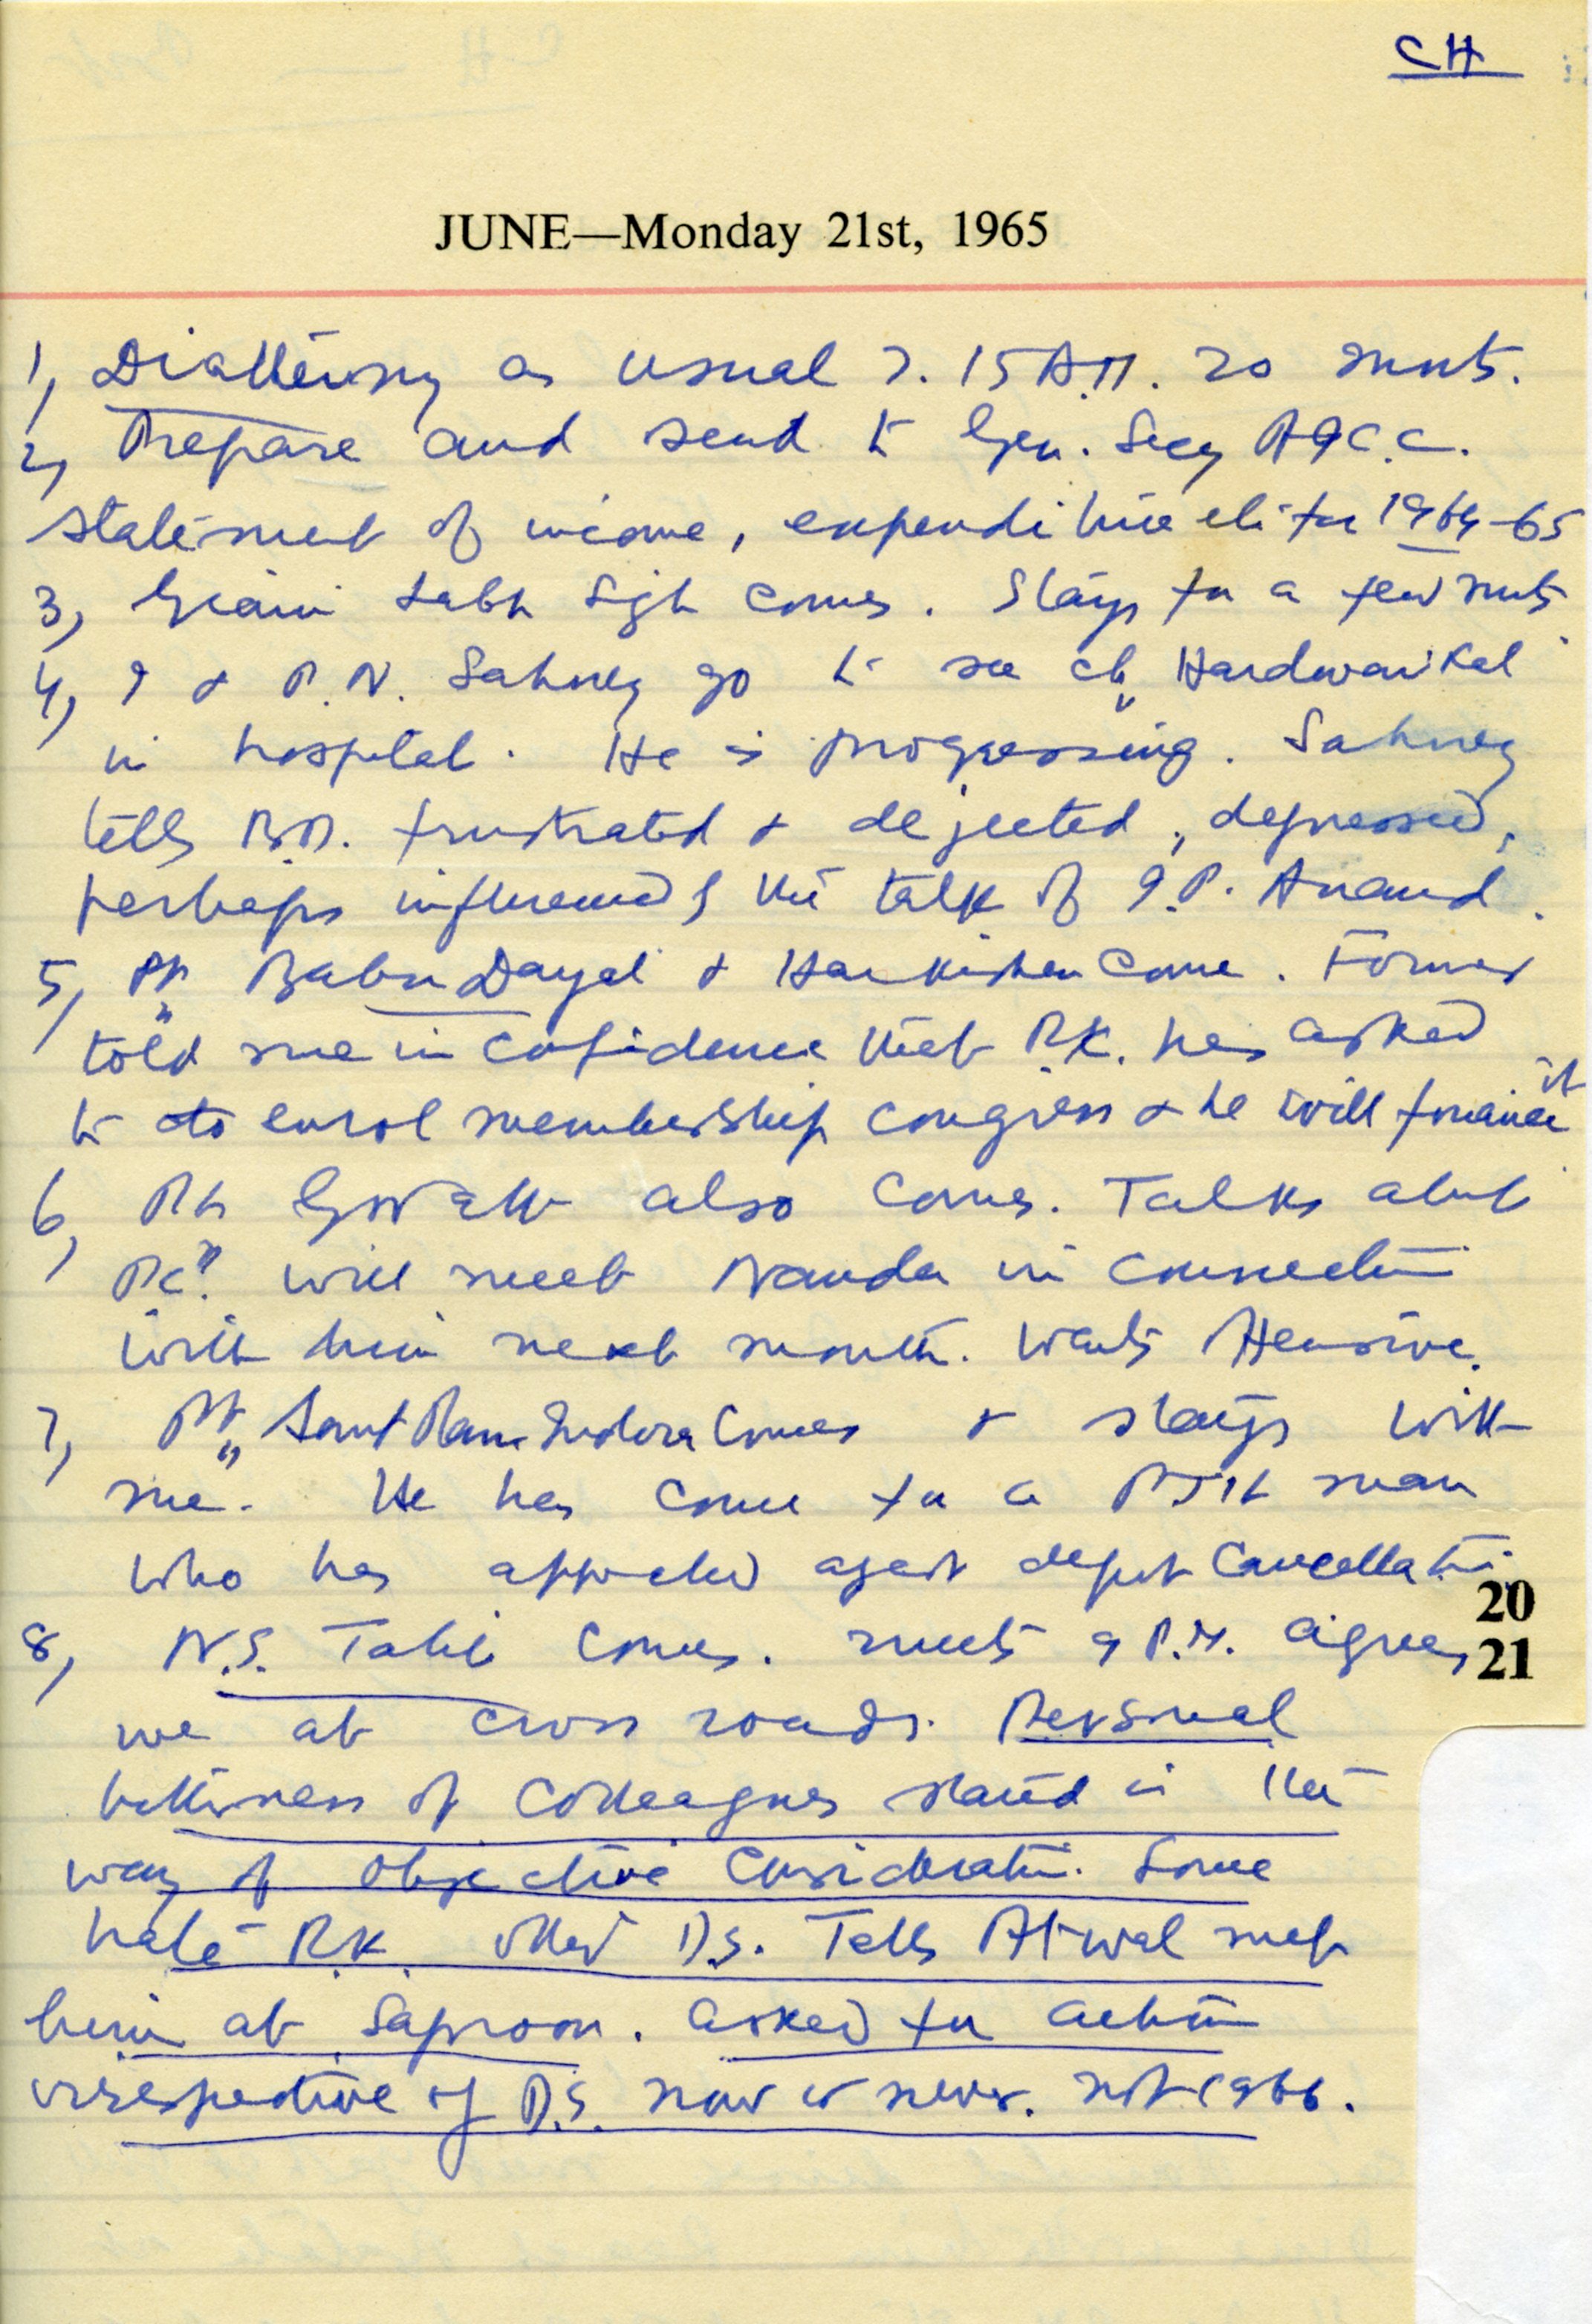 CH
JUNE—Monday 21st, 1965
1, Diathermy as usual 7.15 A.M. 20 mnts.
2, Prepare and send to Gen. Secy AICC.
statement of income, expenditure etc for 1964-65
3, Giani Labh Sigh comes. Stays for a few mnts
4, I & P.N. Sahney go to see Ch. Hardwari Lal
in hospital. He is progressing. Sahney
tells B.D. frustrated & dejected, depressed,
perhaps influenced by the talk of I.P. Anand.
5, Pt. Babu Dayal & Harkishen come. Former
told me in confidence that R.K. has asked
to enrol membership congress & he will finance it
6, also comes. Talks abut
will meet Nanda in connection
with him next month. Wants
7, Pt. Sant Ram comes & stays with
me. He has come for a man
who has appealed agest depot cancellation.
8, N.S. comes. meets 9 P.M. agrees
20
21
we at cross roads. Personal
bitterness of colleagues stand in the
way of objective consideration. Some
hate R.K. other D.S. Tells Atwal met
him at Saproon. asked for action
irrespective of D.S. now or never. not 1966.